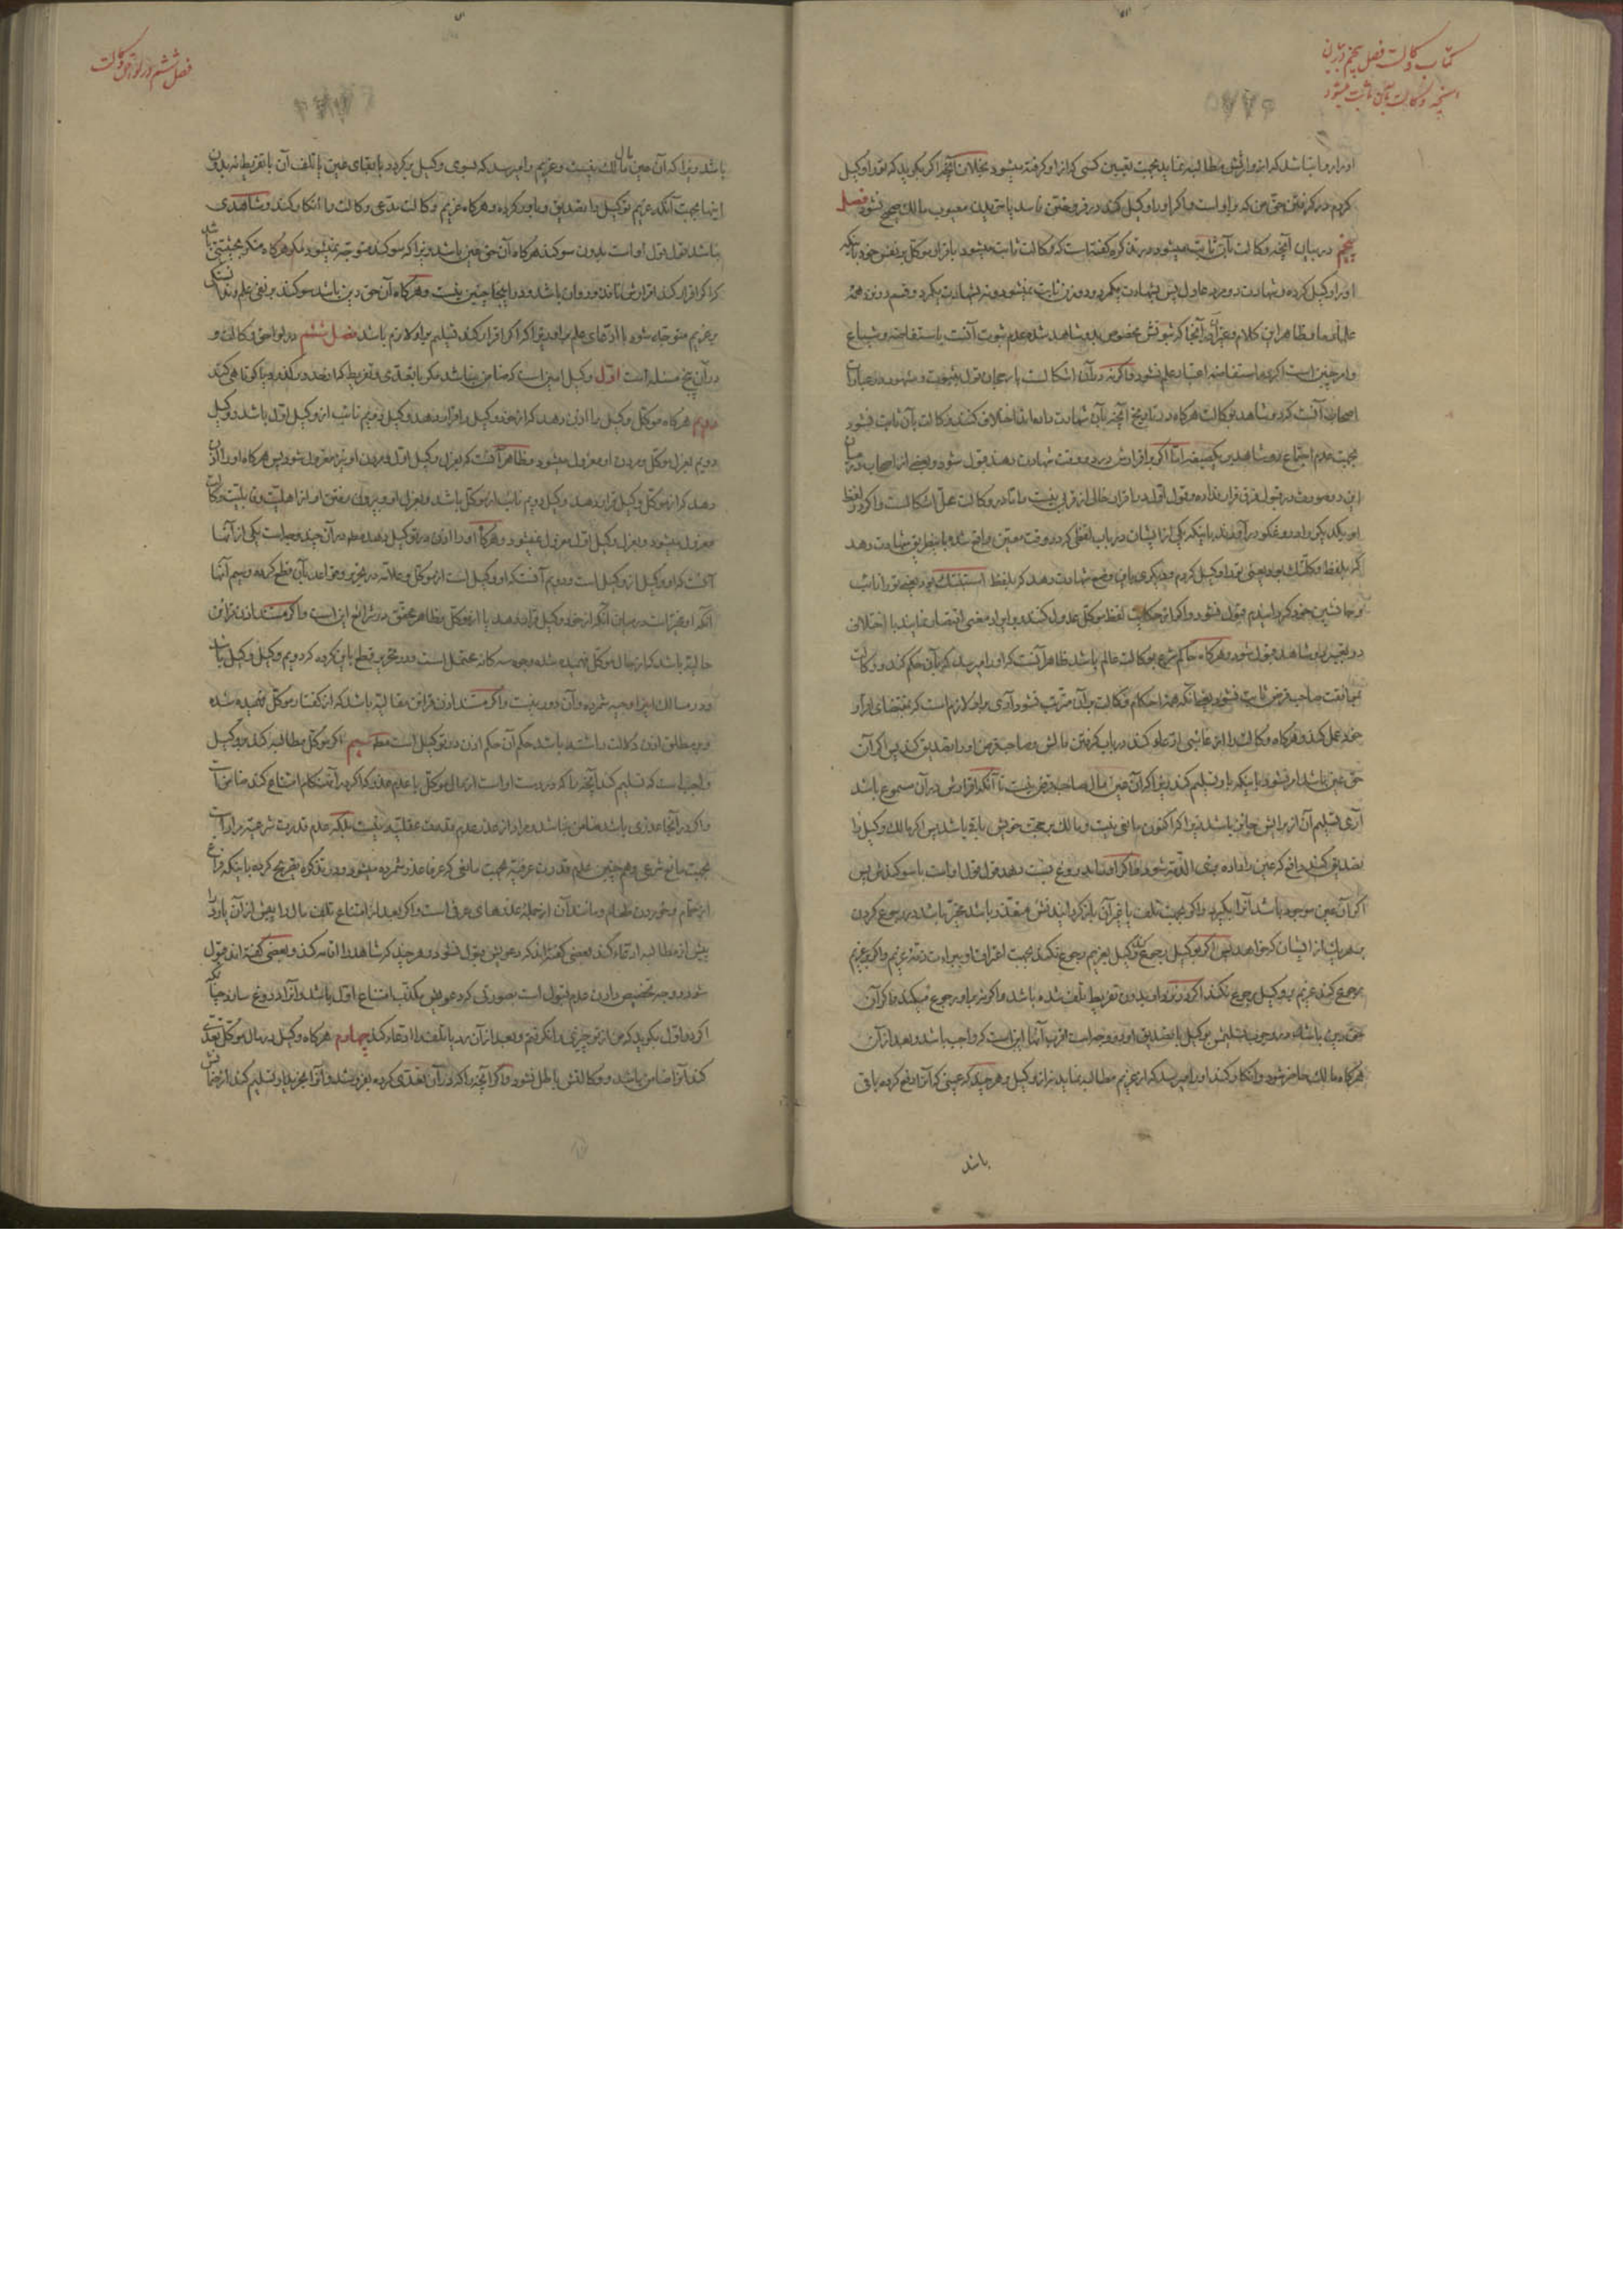 کتاب وکالت فصل پنجم در بیان
آنچه وکالت بآن ثابت میشود
او را و را نباشد که از وارثش مطالبه نماید بجهت تعیین کسی که از او گرفته میشود بخلاف آنکه اگر بگوید که تو را وکیل
کردم در گرفتن حق من که بر او است و اگر او را وکیل کند در فروختن فاسد یا خریدن معیوب مالک صحیح نشود فصل
پنجم در بیان آنچه وکالت بآن ثابت میشود در تذکره گفته است که وکالت ثابت میشود باقرار موکل بر نفس خود باینکه
او را وکیل کرده و شهادت دو مرد عادل پس بشهادت یکمرد و دو زن ثابت نمیشود و نه بشهادت یکمرد و قسم در نزد همهٔ
علماء ما و ظاهر این کلام و غیر آن در آنجا که ثبوتش مخصوص بدو شاهد شده عدم ثبوت آنست باستفاضه و شیاع
و امر چنین است اگر باستفاضه اعتبار علم نشود و اگر نه در آن اشکالست با رجحان قول بثبوت و مشهور در عبارات
اصحاب آنست که دو شاهد بوکالت هرگاه در تاریخ آنچه بآن شهادت داده‌اند اختلاف کنند وکالت بآن ثابت نشود
بجهت عدم اجتماع دو شاهد بر یکصیغه اما اگر بر اقرارش در دو وقت شهادت دهند قبول شود و بعضی از اصحاب در میان
این دو صورت در قبول فرق قرار نداده و قول اول
کردم و دیگری باین وضع شهادت دهد که بلفظ استنبتک بود یعنی تو را نایب
و جانشین خود گردانیدم قبول نشود و اگر از حکایت لفظ موکل عدول کنند و بایراد معنی اقتصار نمایند با اختلاف
در تعبیر دو شاهد قبول شود و هرگاه حاکم شرع بوکالت عالم باشد ظاهر آنست که او را میرسد که بآن حکم کند و وکالت
بموافقت صاحب قرض ثابت نشود بحیثیتی که همهٔ احکام وکالت بر آن مترتب نشود آری بر او لازم است که بمقتضای اقرار
خود عمل کند و هرگاه وکالت را از غائبی ادعاء کند در باب گرفتن مالش و صاحب قرض او را تصدیق کند پس اگر آن
حق عین باشد امر نشود باینکه باو تسلیم کند زیرا که آن عین مال صاحب قرض نیست تا آنکه اقرارش در آن مسموع باشد
آری تسلیم آن از برایش جایز باشد زیرا که اکنون مانعی نیست و مالک بر حجت خویش باقی باشد پس اگر مالک وکیل را
تصدیق کند دافع که عین را داده بری الذمه شود و اگر او را بدروغ نسبت دهد قول قول او است با سوگندش پس
اگر آن عین موجود باشد آنرا بگیرد و اگر بجهت تلف یا غیر آن باز گردانیدنش متعذر باشد مخیر باشد در رجوع کردن
بهر یک از ایشان که خواهد پس اگر بوکیل رجوع کند وکیل بغریم رجوع نکند بجهت اعترافاو ببراءت ذمهٔ غریم و اگر بغریم
رجوع کند غریم بر وکیل رجوع نکند اگر در نزد او بدون تفریط تلف شده باشد و اگر نه باو رجوع میکند و اگر آن
حق دین باشد در وجوب تسلیمش بوکیل با تصدیق او دو وجه است اقرب آنها این است که واجب باشد و بعد از آن
هرگاه مالک حاضر شود و انکار کند او را میرسد که از غریم مطالبه نماید نه از وکیل و هر چند که عینی که آنرا دفع کرده باقی
باشد
فصل ششم در لواحق وکالت
باشد زیرا که آن عین مال مالک نیست و غریم را میرسد که بسوی وکیل برگردد با بقای عین یا تلف آن با تفریط نه بدون
اینها بجهت آنکه غریم توکیل را تصدیق و باور کرده و هرگاه غریم وکالت مدعی وکالت را انکار کند و شاهدی
نباشد قول قول او است بدون سوگند هرگاه آن حق عین باشد زیرا که سوگند متوجه نمیشود مگر هرگاه منکر بحیثیتی باشد
که اگر اقرار کند اقرارش نافذ و روان باشد و در اینجا چنین نیست و هرگاه آن حق دین باشد سوگند بر نفی علم و ندانستن
بر غریم متوجه شود با ادعای علم بر او زیرا که اگر اقرار کند تسلیم بر او لازم باشد فصل ششم در لواحق وکالت و
در آن پنج مسئله است اول وکیل امین است که ضامن نباشد مگر با تعدی و تفریط که از حد در گذرد یا کوتاهی کند
دویم هرگاه موکل وکیل را اذن دهد که از خود وکیل را قرار دهد وکیل دویم نائب از وکیل اول باشد و وکیل
دویم بعزل موکل و مردن او معزول میشود و ظاهر آنست که بعزل وکیل اول و مردن او نیز معزول شود پس هرگاه او را اذن
دهد که از موکل وکیل قرار دهد وکیل دویم نائب از موکل باشد و بعزل او و بیرون رفتن او از اهلیت و قابلیت وکالت
معزول میشود و بعزل وکیل اول معزول نمیشود و هرگاه او را اذن در توکیل دهد در آن چند وجه است یکی از آنها
آنست که او وکیل از وکیل است و دویم آنستکه او وکیل است از موکل و علامه در تحریر و قواعد بآن قطع کرده و سیم آنها
حالیه باشد که از حال موکل فهمیده شده وجوه سه گانه محتمل است و در تحریر قطع باین کرده که دویم وکیل وکیل باشد
و در مسالک اینرا وجیه شمرده و آن دور نیست و اگر مستند اذن قرائن مقالیه باشد که از گفتار موکل فهمیده شده
و بر مطلق اذن دلالت داشته باشد حکم آن حکم اذن در توکیل است مطلقا سیم اگر موکل مطالبه کند بر وکیل
واجب است که تسلیم کند آنچه را که در دست او است از مال موکل با عدم عذر و اگر در آنهنگام امتناع کند ضامن است
و اگر در آنجا عذری باشد ضامن نباشد و مراد از عذر عدم قدرت عقلیه نیست بلکه عدم قدرت شرعیه مراد است
بجهت مانع شرعی و همچنین عدم قدرت عرفیه بجهت مانعی که عرفا عذر شمرده میشود و در تذکره تصریح کرده باینکه فراغ
از حمام و خوردن طعام و مانند آن از جملهٔ عذرهای عرفی است و اگر بعد از امتناع تلف مال را پیش از آن یا رد را
پیش از مطالبه ادعاء کند بعضی گفته‌اند که دعویش قبول نشود و هر چند که شاهد را اقامه کند و بعضی گفته‌اند قبول
اگر در اول بگوید که من از تو چیزی را نگرفتم و بعد از آن رد یا تلف را ادعاء کند چهارم هرگاه وکیل در مال موکل تعدی
کند آنرا ضامن باشد و وکالتش باطل نشود و اگر آنچه را که در آن تعدی کرده بفروشد و آنرا بخریدار تسلیم کند از ضمانش